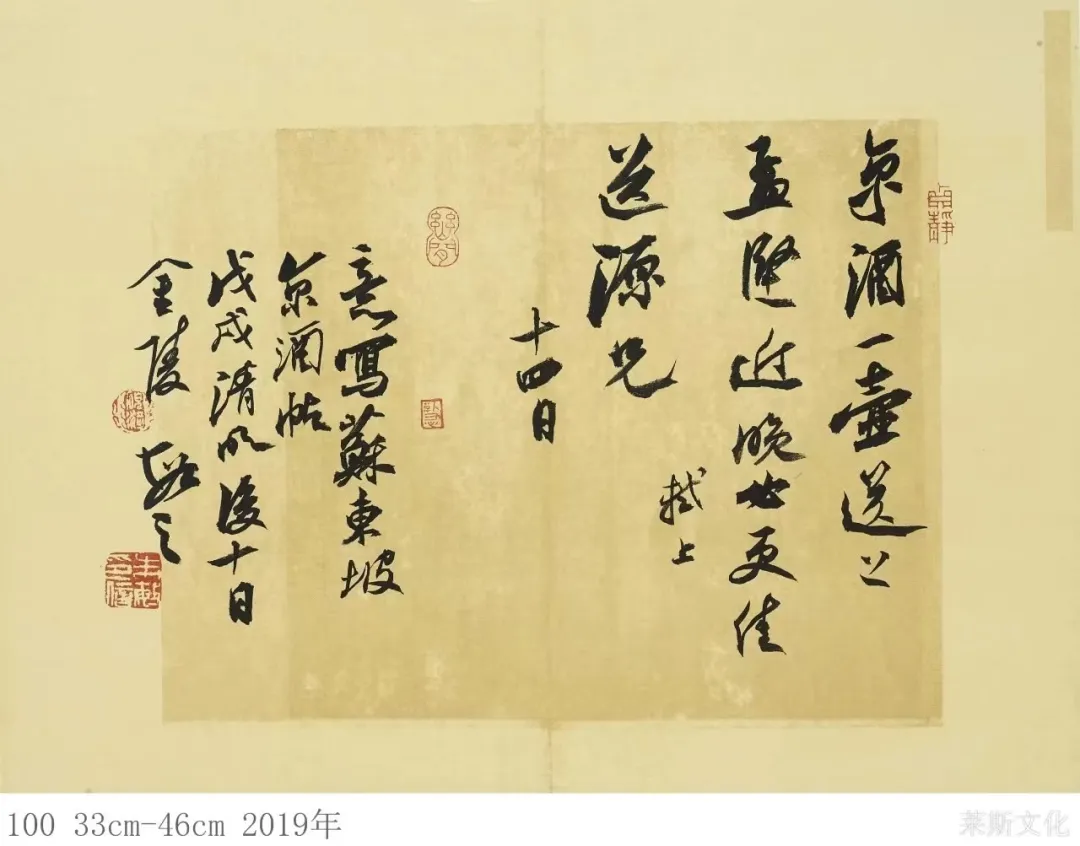 京酒一壺送上
孟堅近晚必更佳
軾上
道源兄
十四日
意寫蘇東坡
京酒帖
戊戌清明後十日
金陵
100 33cm-46cm 2019年
莱斯文化